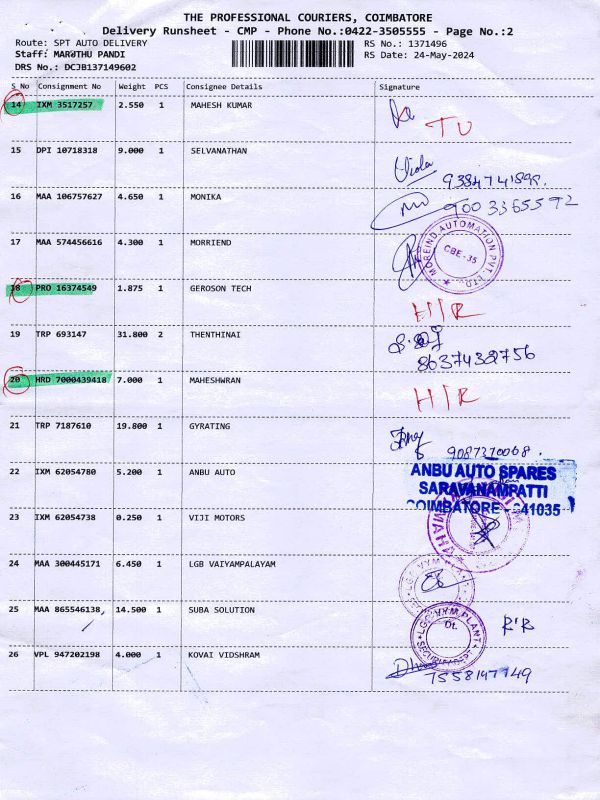 THE PROFESSIONAL COURIERS, COIMBATORE
Delivery Runsheet - CMP - Phone No.:0422-3505555 - Page No.:2
Route: SPT AUTO DELIVERY RS No.: 1371496
Staff: MARUTHU PANDI RS Date: 24-May-2024
DRS No.: DCJB137149602
S No Consignment No Weight PCS Consignee Details Signature
14 IXM 3517257 2.550 1 MAHESH KUMAR
TU
15 DPI 10718318 9.000 1 SELVANATHAN
16 MAA 106757627 4.650 1 MONIKA
9003365592
17 MAA 574456616 4.300 1 MORRIEND
MOREIND AUTOMATION PVT. LTD.
CBE-35
18 PRO 16374549 1.875 1 GEROSON TECH
19 TRP 693147 31.800 2 THENTHINAI
8637432756
20 HRD 7000439418 7.000 1 MAHESHWRAN
21 TRP 7187610 19.800 1 GYRATING
22 IXM 62054780 5.200 1 ANBU AUTO
ANBU AUTO SPARES
SARAVANAMPATTI
COIMBATORE - 641035
23 IXM 62054738 0.250 1 VIJI MOTORS
24 MAA 300445171 6.450 1 LGB VAIYAMPALAYAM
25 MAA 865546138, 14.500 1 SUBA SOLUTION
26 VPL 947202198 4.000 1 KOVAI VIDSHRAM